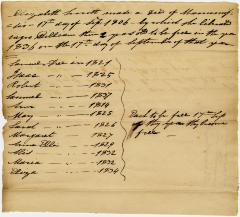 Elizabeth made a deed of Manumis-
sion 17th day of Sep. 1806 – by which she liberates
negro William then 2 years old to be free in the year
1836 on the 17th day of September of that year
Samuel Dec in 1821
Isaac – – 1825
Robert – – 1831
Samuel – – 1837
Ann – – 1814
May – – 1825
Sarah – – 1826
Margaret – – 1827
– – 1829
– – 1832
Maria – – 1832
Eliza – – 1834
Each to be free 17th Sep
of the year they become
free